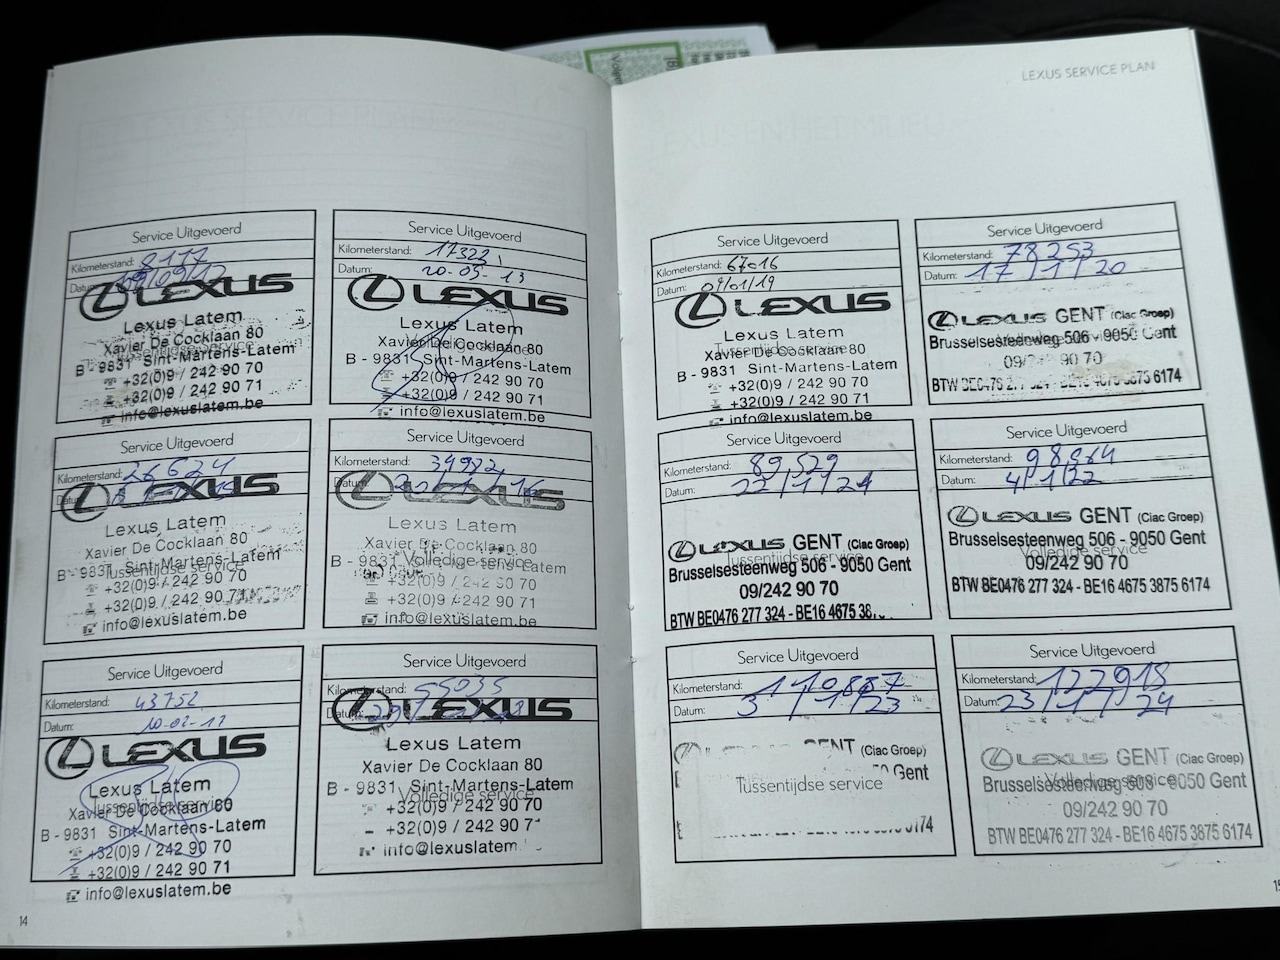 Service Uitgevoerd
Kilometerstand: 8177
Datum: 09/09/12
LEXUS
Lexus Latem
Xavier De Cocklaan 80
Tussentijdse service
B - 9831 Sint-Martens-Latem
+32(0)9 / 242 90 70
+32(0)9 / 242 90 71
info@lexuslatem.be
Service Uitgevoerd
Kilometerstand: 17322
Datum: 20-05-13
LEXUS
Lexus Latem
Xavier De Cocklaan 80
B - 9831 Sint-Martens-Latem
+32(0)9 / 242 90 70
+32(0)9 / 242 90 71
info@lexuslatem.be
Service Uitgevoerd
Kilometerstand: 26624
Datum:
LEXUS
Lexus Latem
Xavier De Cocklaan 80
B - 9831 Sint-Martens-Latem
Tussentijdse service
+32(0)9 / 242 90 70
+32(0)9 / 242 90 71
info@lexuslatem.be
Service Uitgevoerd
Kilometerstand: 34972
Datum:
LEXUS
Lexus Latem
Xavier De Cocklaan 80
Volledige service
B - 9831 Sint-Martens-Latem
+32(0)9 / 242 90 70
+32(0)9 / 242 90 71
info@lexuslatem.be
Service Uitgevoerd
Kilometerstand: 43752
Datum:
LEXUS
Lexus Latem
Tussentijdse service
Xavier De Cocklaan 80
B - 9831 Sint-Martens-Latem
+32(0)9 / 242 90 70
+32(0)9 / 242 90 71
info@lexuslatem.be
Service Uitgevoerd
Kilometerstand: 55035
Datum:
LEXUS
Lexus Latem
Xavier De Cocklaan 80
B - 9831 Sint-Martens-Latem
Volledige service
+32(0)9 / 242 90 70
+32(0)9 / 242 90 7
info@lexuslatem.
14
LEXUS SERVICE PLAN
Service Uitgevoerd
Kilometerstand: 67016
Datum: 09/01/19
LEXUS
Lexus Latem
Xavier De Cocklaan 80
Tussentijdse service
B - 9831 Sint-Martens-Latem
+32(0)9 / 242 90 70
+32(0)9 / 242 90 71
info@lexuslatem.be
Service Uitgevoerd
Kilometerstand: 78253
Datum: 17/1/20
LEXUS GENT (Ciac Groep)
Brusselsesteenweg 506 - 9050 Gent
09/ 90 70
Service Uitgevoerd
Kilometerstand: 89529
Datum: 22/1/21
LEXUS GENT (Ciac Groep)
Tussentijdse service
Brusselsesteenweg 506 - 9050 Gent
09/242 90 70
BTW BE0476 277 324 - BE16 4675 38
Service Uitgevoerd
Kilometerstand:
Datum: 4/1/22
LEXUS GENT (Ciac Groep)
Brusselsesteenweg 506 - 9050 Gent
Volledige service
09/242 90 70
BTW BE0476 277 324 - BE16 4675 3875 6174
Service Uitgevoerd
Kilometerstand: 110887
Datum: 3/1/23
GENT (Ciac Groep)
Gent
Tussentijdse service
Service Uitgevoerd
Kilometerstand: 122918
Datum: 23/1/24
LEXUS GENT (Ciac Groep)
Brusselsesteenweg 506 - 9050 Gent
Volledige service
09/242 90 70
BTW BE0476 277 324 - BE16 4675 3875 6174